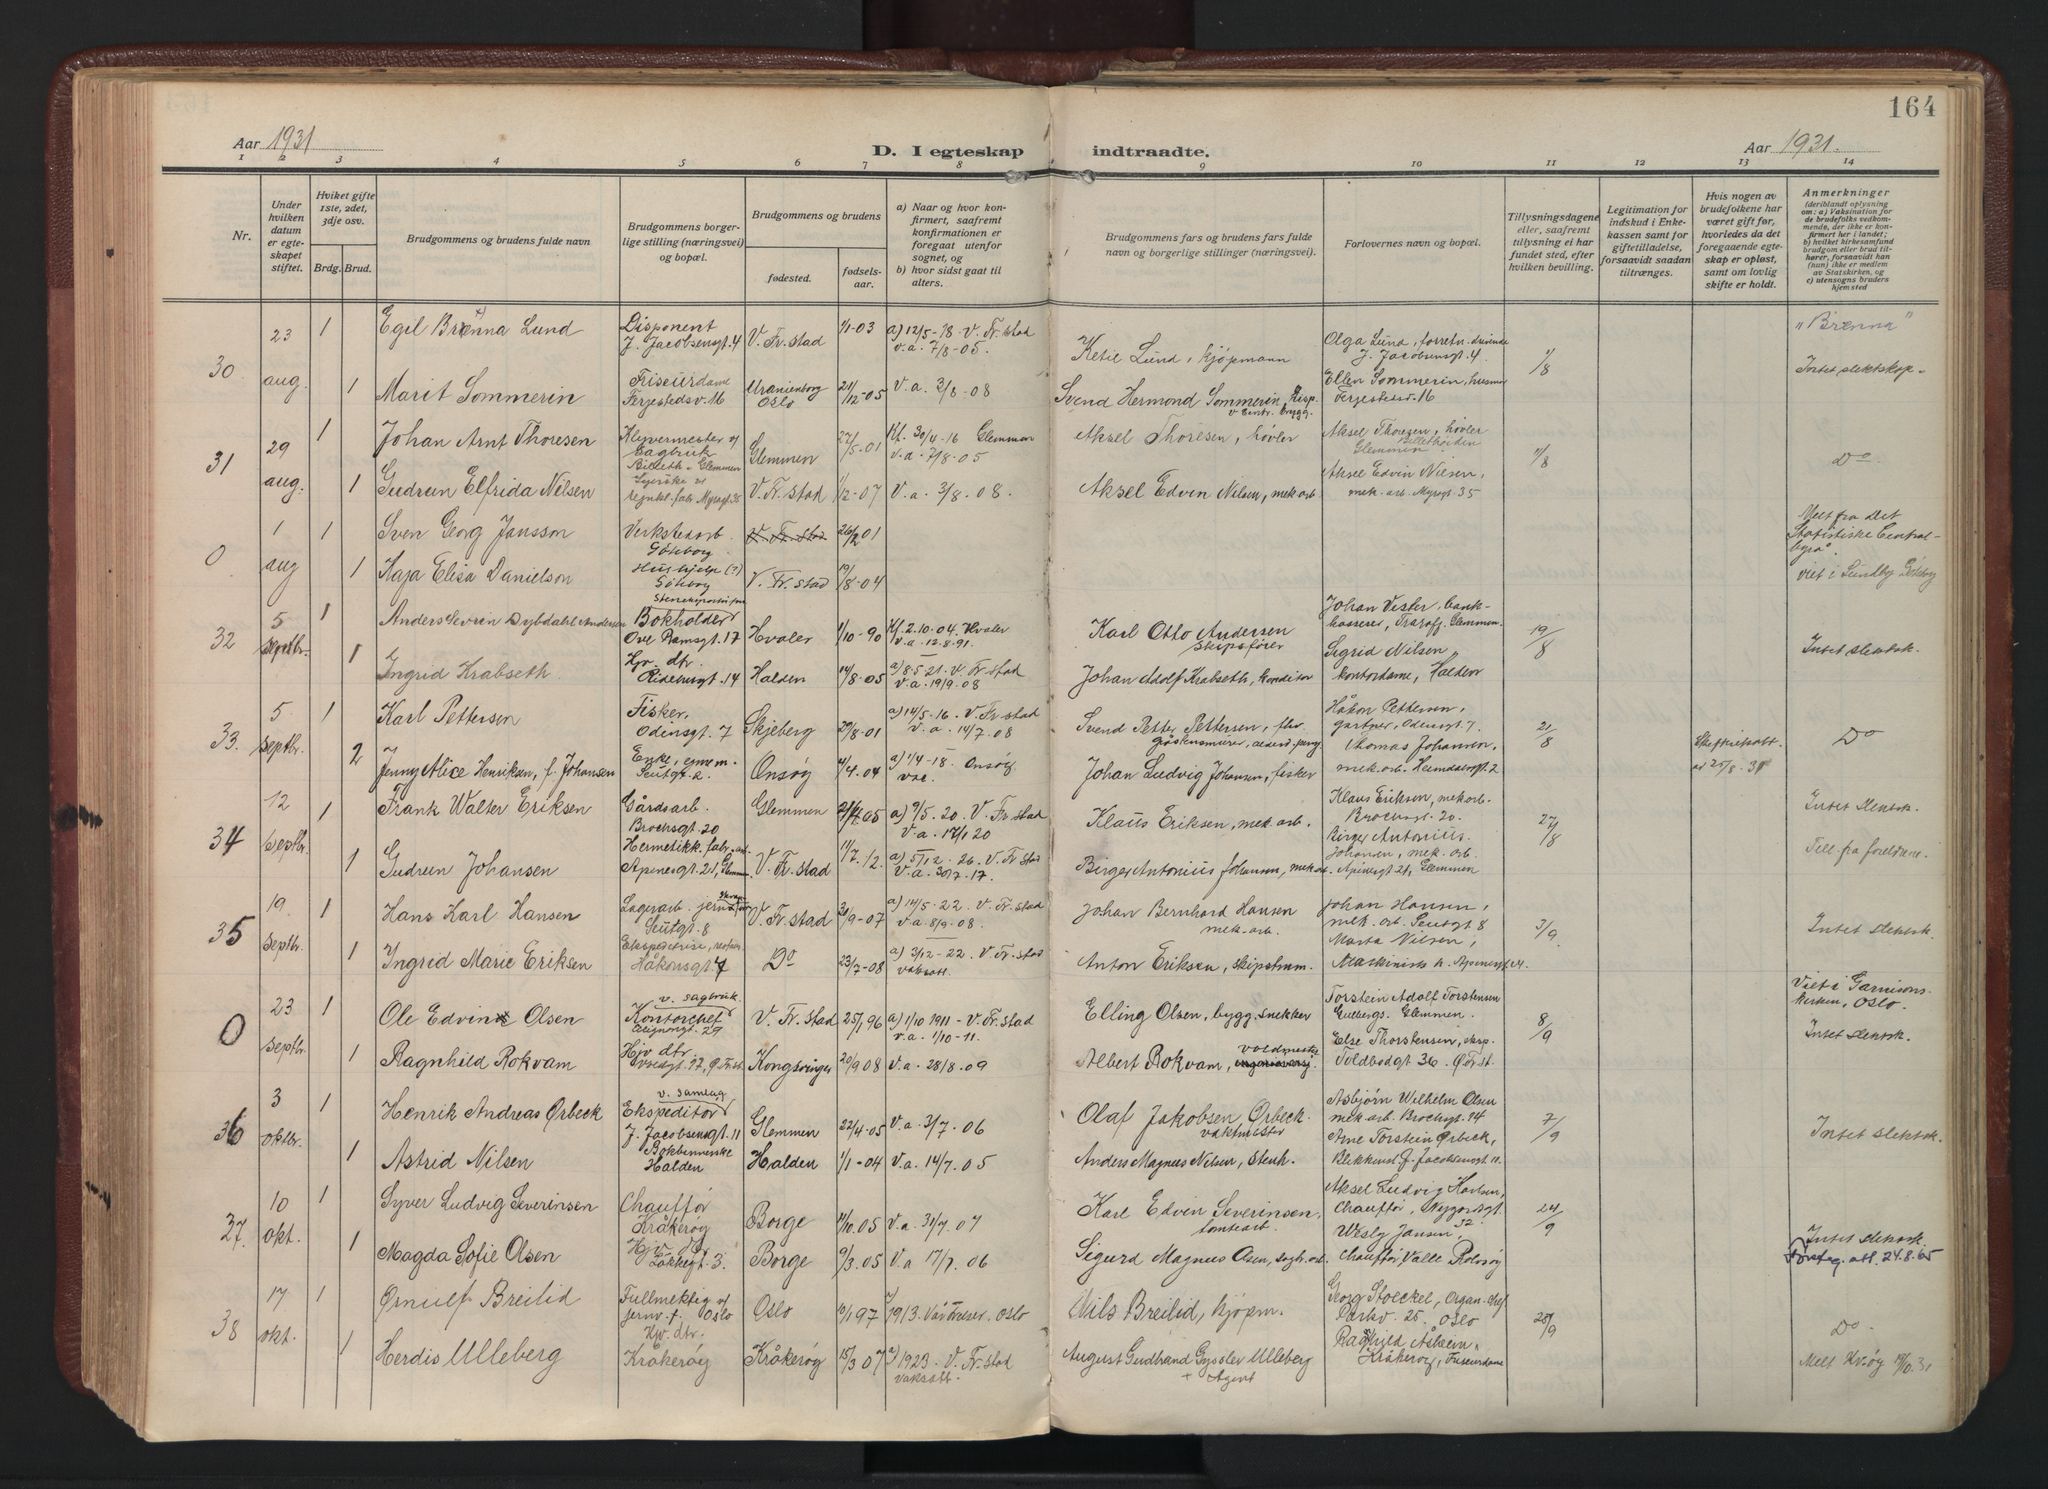 164
Aar 1931
D. I egteskap indtraadte.
Aar 1931.
1 2 3 4 5 6 7 8 9 10 11 12 13 14
Nr.
Under hvilken datum er egteskapet stiftet.
Hviket gifte 1ste, 2det, 3dje osv.
Brdg. Brud.
Brudgommens og brudens fulde navn
Brudgommens borgerlige stilling (næringsvei) og bopæl.
Brudgommens og brudens
fødested.
fødselsaar.
a) Naar og hvor konfirmert, saafremt konfirmationen er foregaat utenfor sognet, og
b) hvor sidst gaat til alters.
Brudgommens fars og brudens fars fulde navn og borgerlige stillinger (næringsvei).
Forlovernes navn og bopæl.
Tillysningsdagene eller, saafremt tillysning ei har fundet sted, efter hvilken bevilling.
Legitimation for indskud i Enkekassen samt for giftetilladelse, forsaavidt saadan tiltrænges.
Hvis nogen av brudefolkene har været gift før, hvorledes da det foregaaende egteskap er opløst, samt om lovlig skifte er holdt.
Anmerkninger
(deriblandt oplysning om: a) Vaksination for de brudefolks vedkommende, der ikke er konfirmert her i landet; b) hvilket kirkesamfund brudgom eller brud tilhører, forsaavidt han (hun) ikke er medlem av Statskirken, og c) utensogns bruders hjemsted
30 23 aug. 1 Egil Brenna Lund Disponent J. Jacobsengt. 4 V. Fr.stad 1/1-03 a) 12/5-18. V. Fr.stad v.a. 7/8-05. Ketil Lund, kjøpmann Olga Lund, forretn. drivende J. Jacobsensgt. 4 1/8 "Brenna"
1 Marit Sommerin Friseurdame Ferjestedsv. 16 Uranienborg Oslo 21/12-05 V.a. 3/8-08 Svend Hermond Sommerin, Ellen Sommerin, husmor Ferjestedsv. 16 Intet slektskap.
31 29 aug. 1 Johan Arnt Thoresen Glemmen 27/5-01 Kf. 30/4-16 Glemmen v.a. 7/8-05 Aksel Thoresen, høvler Aksel Thoresen, høvler Glemmen 1/8 Do
1 Gudrun Elfrida Nilsen V. Fr.stad 1/12-07 V.a. 3/8.08. Aksel Edvin Nilsen, mek. arb. Aksel Edvin Nilsen, mek. arb. Myrgt. 35
0 1 aug 1 Sven Georg Jansson Verkstedarb. Göteborg V. Fr. stad 26/2 01 Melt fra Det Statistiske Centralbyrå.
1 Kaja Elisa Danielson Hushjelp (?) Göteborg V. Fr. stad 19/8-04 viet i Lundby Göteborg
32 5 septbr. 1 Anders Severin Dybdahl Andersen Bokholder Ove Ramsgt. 17 Hvaler 1/10-90 Kf. 2.10.04. Hvaler v.a. 12.8.91. Karl Otto Andersen skipsfører Johan Vister, bankkasserer, Glemmen 19/8
1 Ingrid Krabseth Hjv. dtr. Ridehusgt. 14 Halden 14/8-05 a) 8.5.21. V. Fr.stad v.a. 19/9.08 Johan Adolf Krabseth, konditor Sigrid Nilsen, kontordame, Halden Intet slektsk.
33. 5 septbr. 1 Karl Pettersen Fisker, Odinsgt. 7 Skjeberg 29/8-01 a) 14/5-16. V. Fr.stad v.a. 14/7.08 Svend Petter Pettersen, Håkon Pettersen, gartner, Odinsgt. 7. 21/8 Do
2 Jenny Alice Henriksen, f. Johansen Enke, egne m. Seutgt. 2. Onsøy 4/4.04 a) 1/4-18- Onsøy Johan Ludvig Johansen, fisker Thomas Johansen, mek. arb. Heimdalsgt. 2 Skifteatt. av 25/8-31
34 12 Septbr. 1 Frank Walter Eriksen Gårdsarb. Brochsgt. 20 Glemmen a) 9/5.20. V. Fr.stad v.a. 17/1 20 Klaus Eriksen, mek. arb. Klaus Eriksen, mek arb. Brochsgt. 20. 27/8 Intet slektsk.
1 Gudrun Johansen Hermetikk. fabr. arb. Apenesgt. 21, Glemmen V. Fr. stad 11/7.12. a) 5/12.26. V. Fr.stad v.a. 30/7.17. Birger Antonius Johansen, mek. arb. Birger Antonius Johansen, mek. arb. Apenesgt. 21, Glemmen Till. fra foreldrene.
35 19 Septbr. 1 Hans Karl Hansen Lagerarb. Seutgt. 8 V. Fr. stad 30/9-07 a) 14/5-22. V. Fr.stad v.a. 8/9.08. Johan Bernhard Hansen mek. arb. Johan Hansen, mek. arb. Seutgt 8 3/9. Intet slektsk.
1 Ingrid Marie Eriksen Håkonsgt. 7 Do 23/7-08 a) 3/12-22. V. Fr.stad vaksatt. Anton Eriksen, skipstøm. Marta Nilsen,
0 23 septbr. 1 Ole Edvin Olsen v. Sagbruk. Kontorchef V. Fr. stad 25/1 96 a) 1/10 1911 - V. Fr.stad v.a. 1/10-11. Elling Olsen, bygg. snekker Torstein Adolf Torstensen Gulbergs. Glemmen. 8/9 Viet i Garnisons kirken, Oslo. Intet slektsk.
1 Ragnhild Rokvam Hjv dtr Kongsvinger 20/9 08 V.a. 28/8.09 Albert Rokvam, Else Thorstensen, Voldbodgt 36. Ø Fr.st.
36 3 oktbr. 1 Henrik Andreas Ørbeck v. Samlag Ekspeditør J. Jacobsensgt. 11 Glemmen 22/4-05 V.a. 3/7.06 Olaf Jakobsen Ørbeck vaktmester Asbjørn Wilhelm Olsen mek arb. Brochsgt. 14 7/9
1 Astrid Nilsen Bokbinnerske Halden Halden 1/1-04 V.a. 14/7.05 Anders Magnus Nilsen, stenh. Arne Torstein Ørbeck, J. Jacobsensgt. 11. Intet slektsk.
37. 10 okt. 1 Syver Ludvig Severinsen Chauffør Kråkerøy Borge 4/10.05 V.a. 31/7.07 Karl Edvin Severinsen, tomtearb. Aksel Ludvig Karlsen, Chauffør, 24/9
1 Magda Sofie Olsen Hjv. dtr. Løkkegt. 3. Borge 9/3.05 V.a 17/7.06 Sigurd Magnus Olsen, sagbr. arb. Wesly Jansen, chauffør, Valle Rolvsøy Intet slektsk.
24.8.65
38 17 okt. 1 Ørnulf Breilid Fullmektig v/ jernv. Oslo Oslo 10/1 97 1913. Vår Frelser, Oslo Nils Breilid, kjøpm. Georg Stoeckel, Parkv. 25. Oslo 25/9 Do.
1 Herdis Ulleberg Hjv. dtr. Kråkerøy Kråkerøy 15/3 07 a) 1923. V. Fr.stad vaksatt. August Gudbrand Gyssler Ulleberg + Agent Ragnhild Kråkerøy, Friseurdame Melt Kr.øy 19/10.31